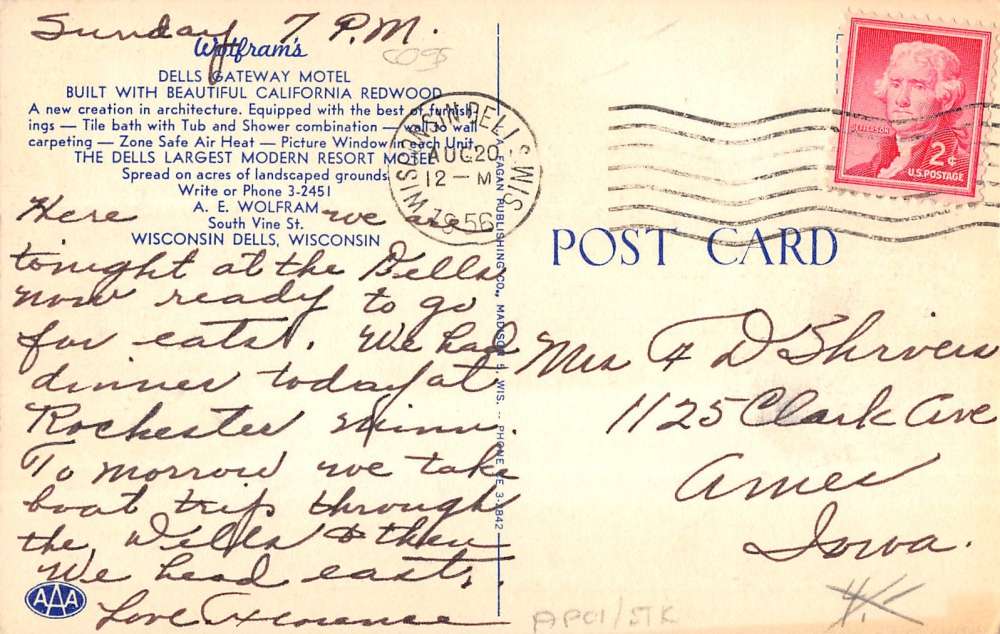 Sunday 7 P.M.
Wolfram's
DELLS GATEWAY MOTEL
BUILT WITH BEAUTIFUL CALIFORNIA REDWOOD
A new creation in architecture. Equipped with the best of furnish-
ings — Tile bath with Tub and Shower combination — wall to wall
carpeting — Zone Safe Air Heat — Picture Window in each Unit.
THE DELLS LARGEST MODERN RESORT MOTEL
Spread on acres of landscaped grounds.
Write or Phone 3-2451
A. E. WOLFRAM
South Vine St.
WISCONSIN DELLS, WISCONSIN
Here we are
tonight at the Dells
now ready to go
for eats. We had
dinner today at
Rochester Minn.
To morrow we take
boat trip through
the Dells & then
We head east.
Love Florence
AAA
L. A. FAGAN PUBLISHING CO., MADISON 5, WIS. -- PHONE CE 3-3842
WISCONSIN DELLS WIS.
AUG 20
12 — M
1956
JEFFERSON
2¢
U.S. POSTAGE
POST CARD
Mrs F D Shrivers
1125 Clark Ave
Ames
Iowa.
AP01/STK